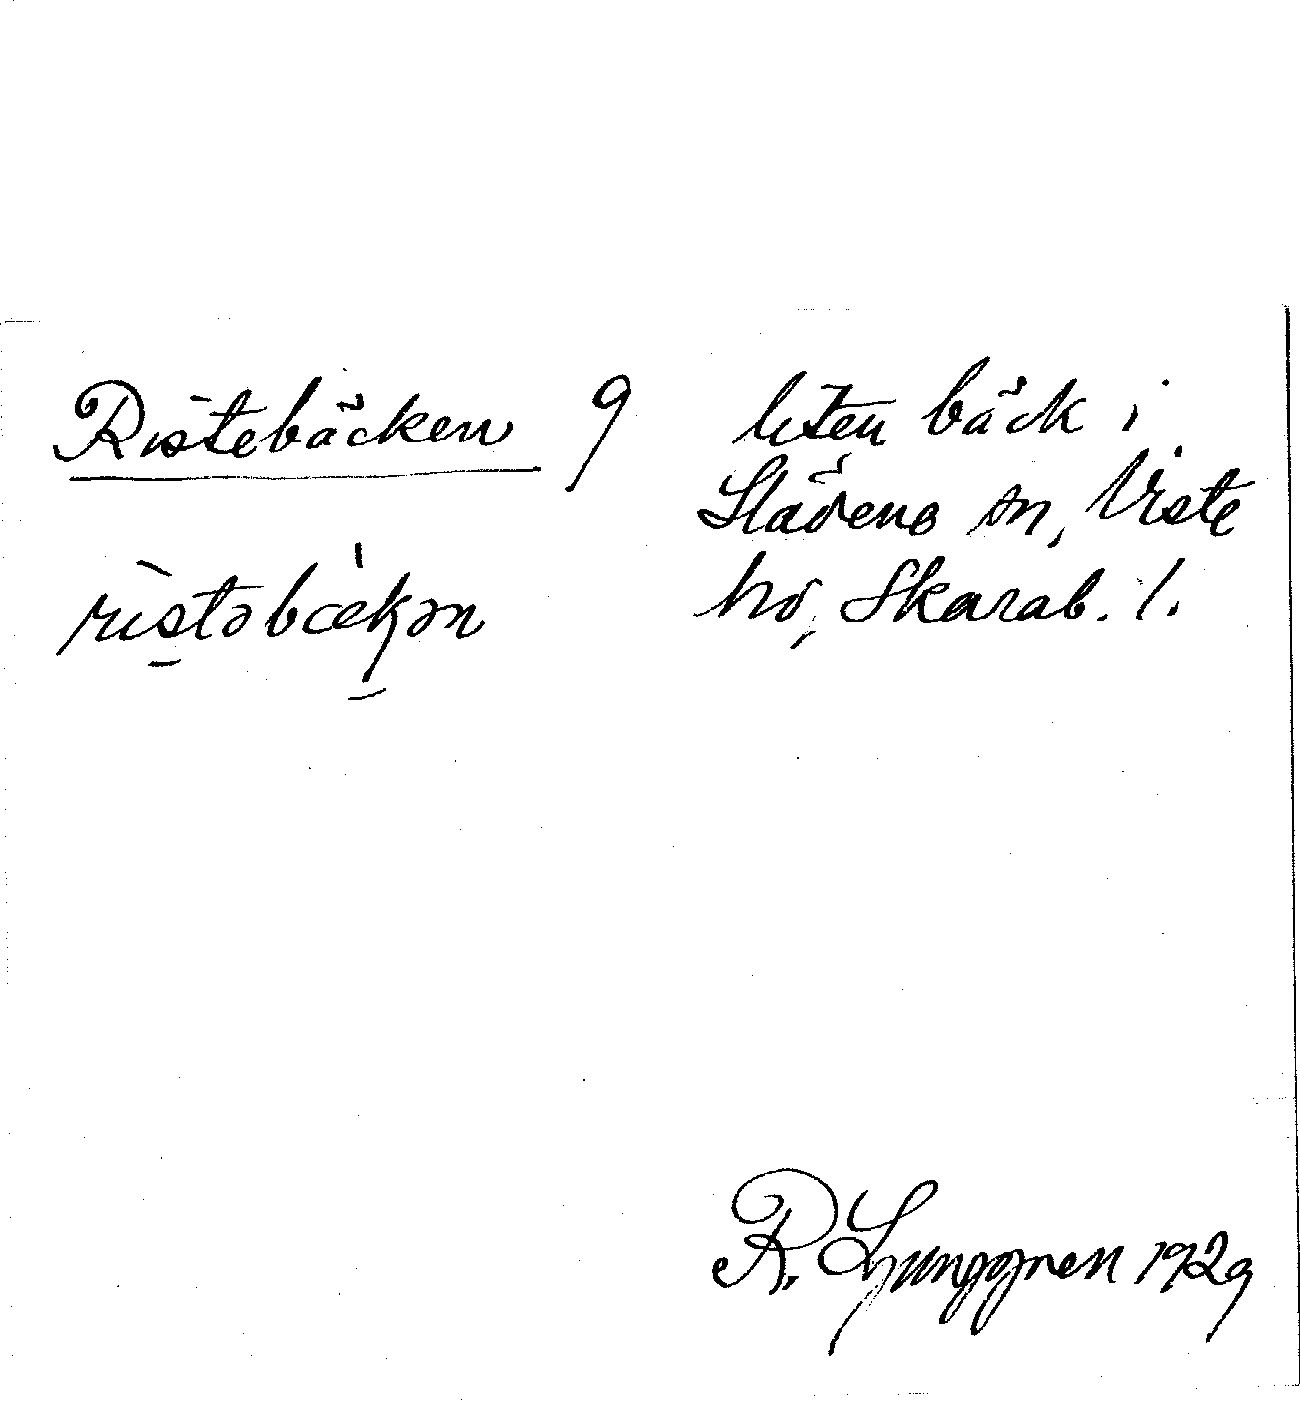 Ristebäcken 9 liten bäck i
Slädene sn, Viste
hd, Skarab. l.
ristəbækən
R. Ljunggren 1929